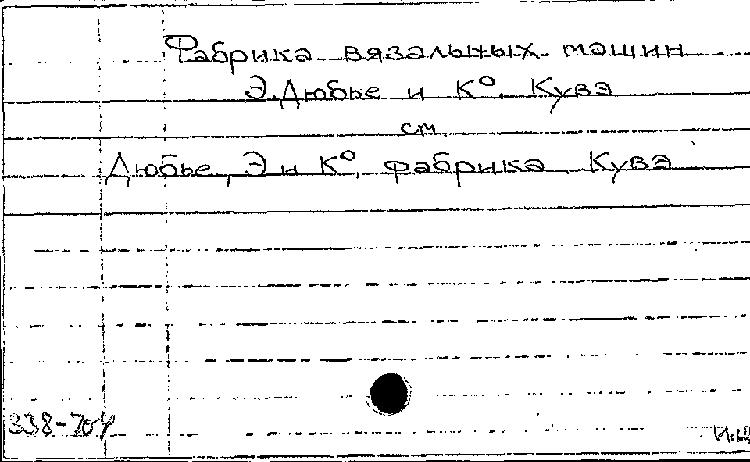 Фабрика вязальных машин
Э. Дюбье и К°. Кувэ
см.
Дюбье, Э и К°, фабрика. Кувэ
338-704